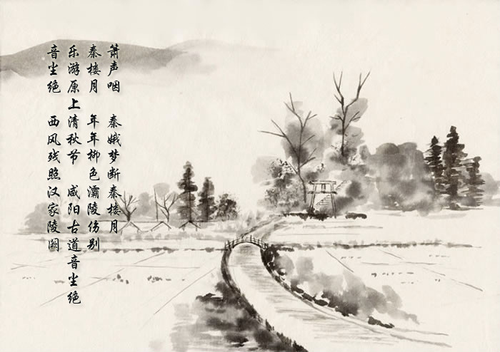 箫声咽 秦娥梦断秦楼月
秦楼月 年年柳色灞陵伤别
乐游原上清秋节 咸阳古道音尘绝
音尘绝 西风残照汉家陵阙